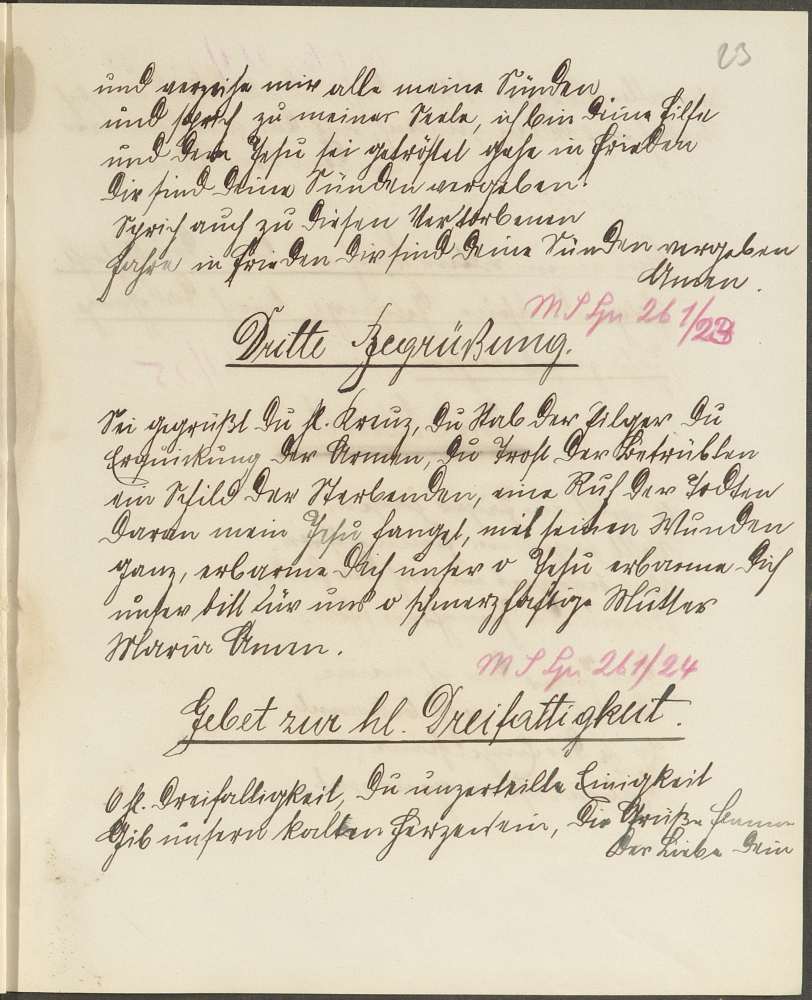 23
und verzeihe mir alle meine Sünden
und sprich zu meiner Seele, ich bin Deine Hilfe
und Dein Jesu sei getröstet gehe in Frieden
Dir sind Deine Sünden vergeben.
Sprich auch zu diesen Verstorbenen
fahre in Frieden Dir sind Deine Sünden vergeben
Amen.
261/23
Dritte Begrüßung.
Sei gegrüßt Du hl. Kreuz, Du Stab der Pilger Du
Erquickung der Armen, Du Trost der Betrübten
ein Schild der Sterbenden, eine Ruh der Todten
Daran mein Jesu hanget, mit seinen Wunden
ganz, erbarme Dich unser o Jesu erbarme Dich
unser bitt für uns o schmerzhaftige Mutter
Maria Amen.
261/24
Gebet zur hl. Dreifaltigkeit.
O hl. Dreifaltigkeit, Du unzertheilte Einigkeit
Gib unsern kalten Herzen ein, Die Flamme
Der Liebe Dein